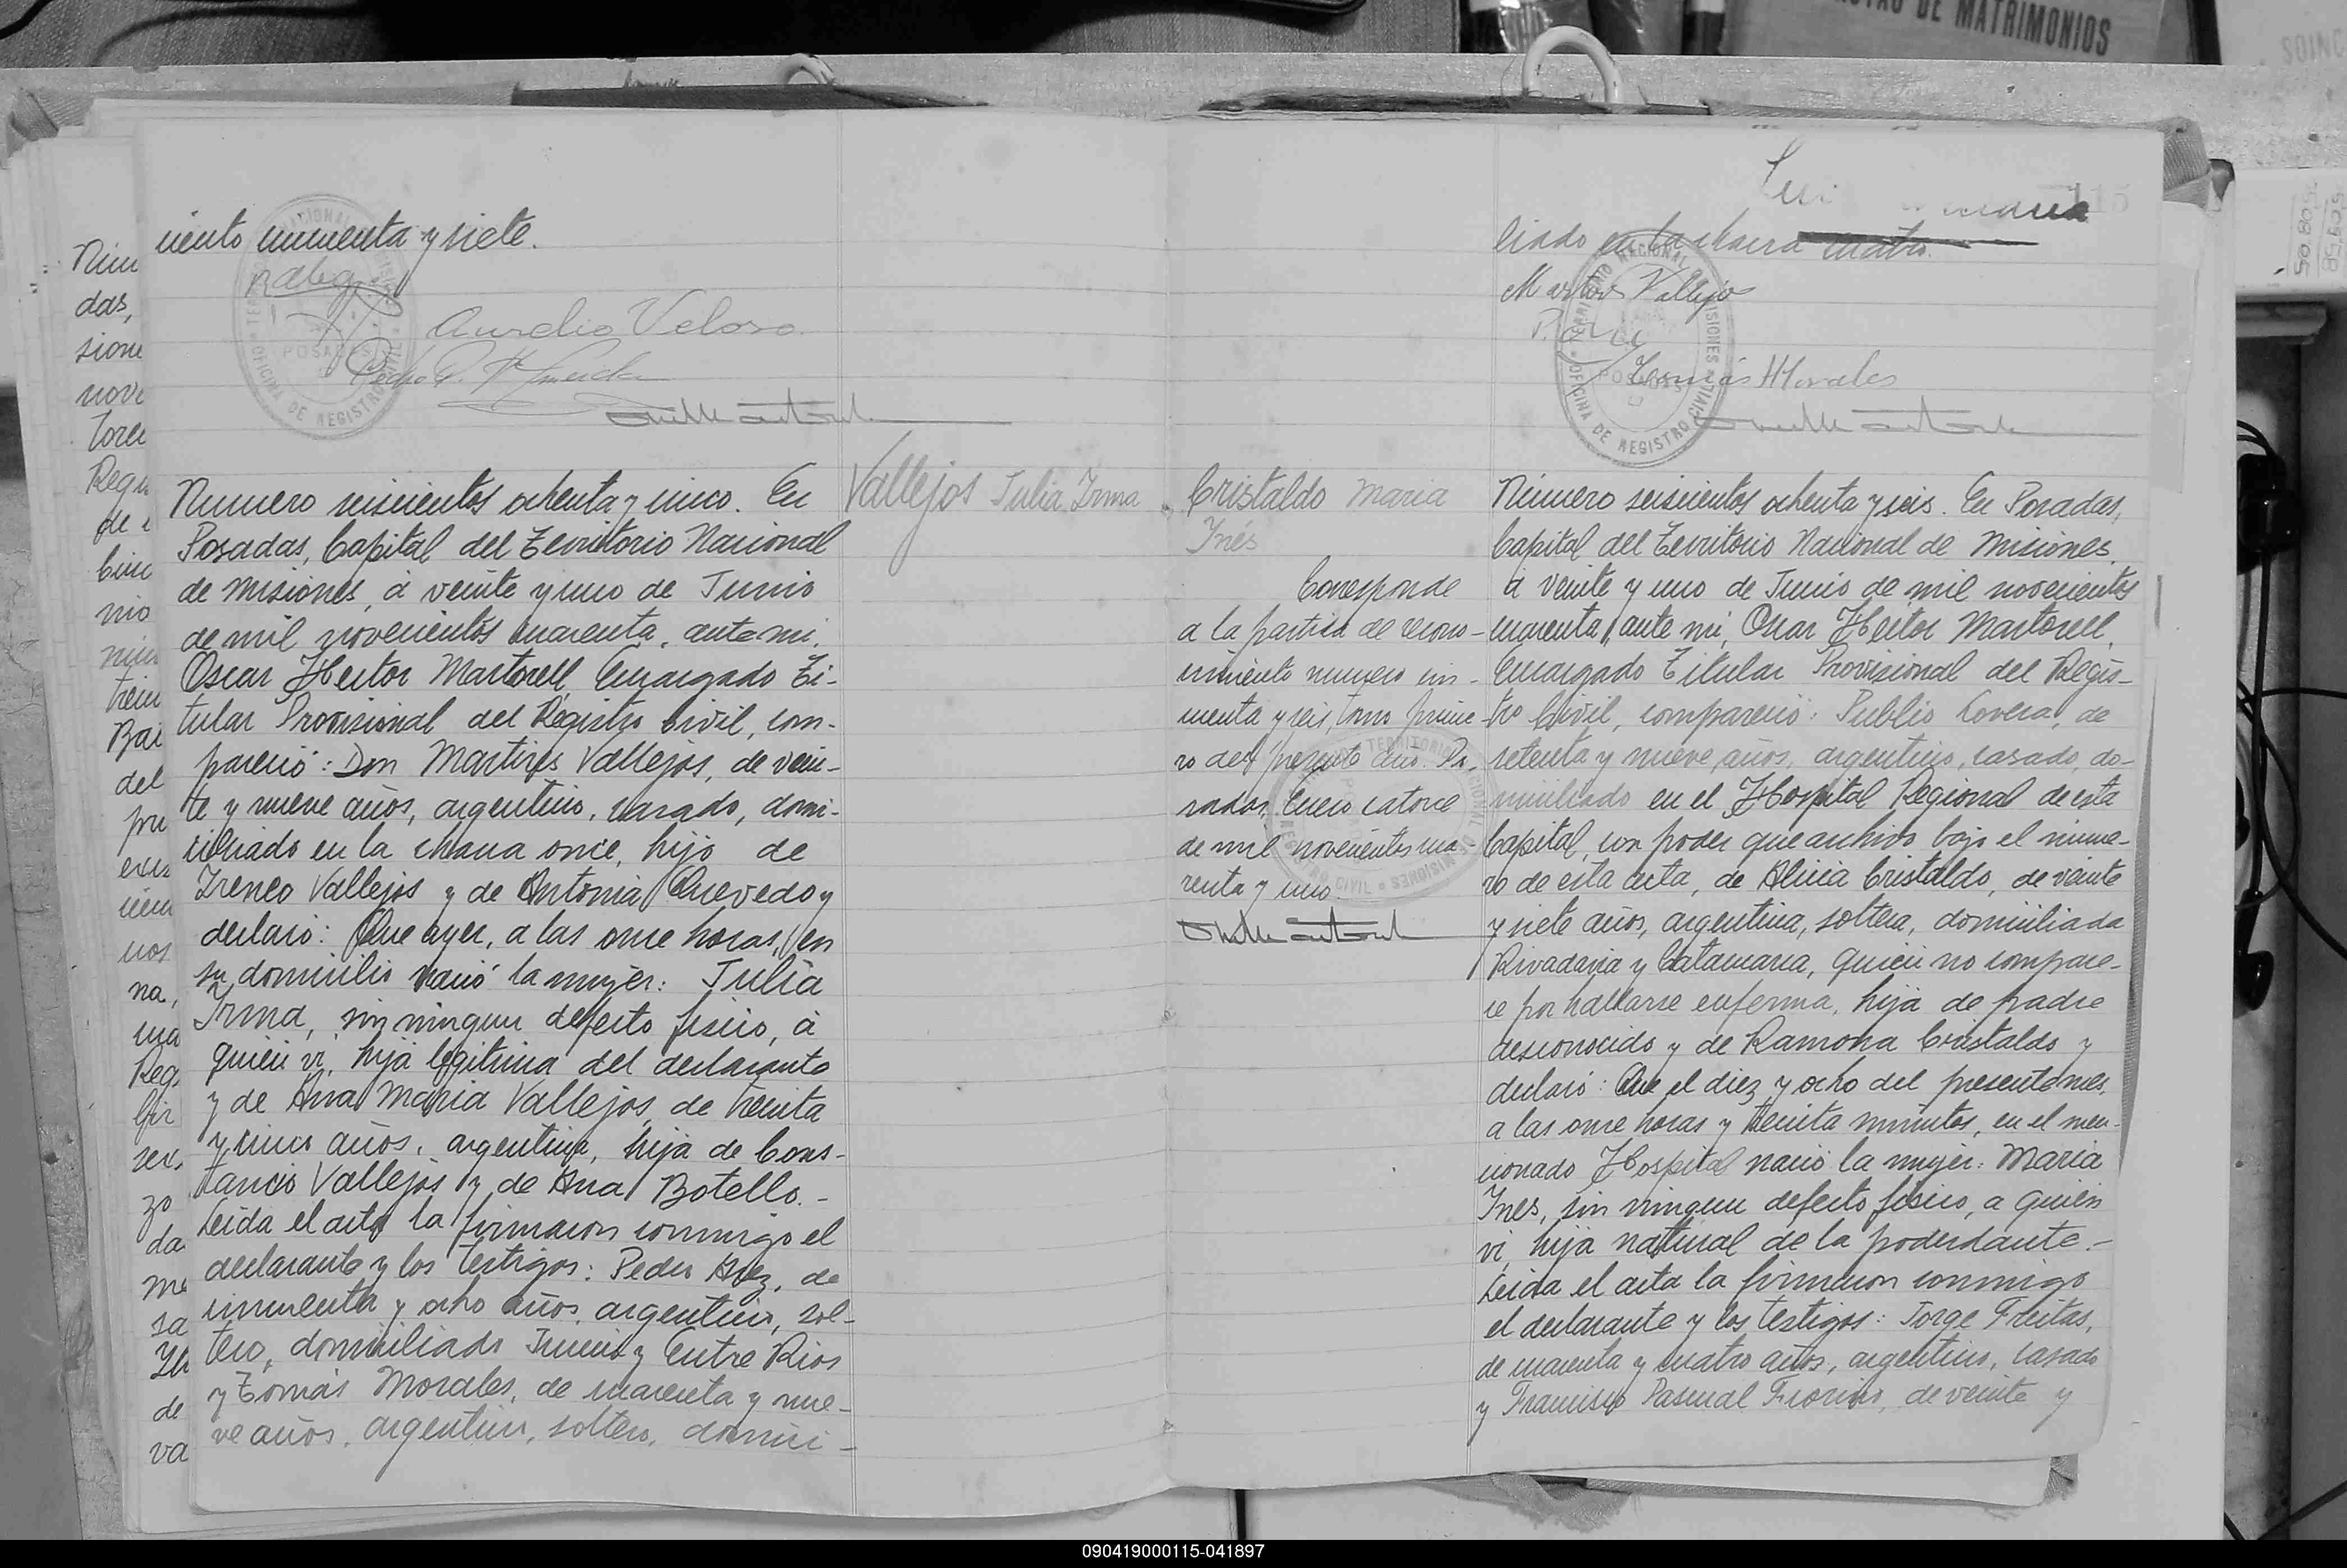 DE MATRIMONIOS
ciento cincuenta y siete.
Aurelio Veloso
TERRITORIO NACIONAL DE MISIONES
POSADAS
OFICINA DE REGISTRO CIVIL
Vallejos Julia Irma
Numero seiscientos ochenta y cinco. En
Posadas, Capital del Territorio Nacional
de Misiones, a veinte y uno de Junio
de mil novecientos cuarenta, ante mi,
Oscar Hector Martorell, Encargado Ti-
tular Provisional del Registro Civil, com-
pareció: Don Martires Vallejos, de vein-
te y nueve años, argentino, casado, domi-
ciliado en la chacra once, hijo de
Ireneo Vallejos y de Antonia Quevedo y
declaró: Que ayer, a las once horas, en
su domicilio nació la mujer: Julia
Irma, sin ningun defecto fisico, a
quien vi, hija legitima del declarante
y de Ana Maria Vallejos, de treinta
y cinco años, argentina, hija de Cons-
tancio Vallejos y de Ana Botello.-
Leida el acta la firmaron conmigo el
declarante y los testigos: Pedro Baez, de
cincuenta y ocho años, argentino, sol-
tero, domiciliado Junin y Entre Rios
y Tomás Morales, de cuarenta y nue-
ve años, argentino, soltero, domici-
liado en la chacra cuatro.
Martires Vallejo
Tomás Morales
TERRITORIO NACIONAL DE MISIONES
POSADAS
OFICINA DE REGISTRO CIVIL
Cristaldo Maria
Inés
Corresponde
a la partida de recono-
cimiento numero cin-
cuenta y seis, tomo prime-
ro del presente año. Po-
sadas, Enero catorce
de mil novecientos cua-
renta y uno.
Numero seiscientos ochenta y seis. En Posadas,
Capital del Territorio Nacional de Misiones,
a veinte y uno de Junio de mil novecientos
cuarenta, ante mi, Oscar Hector Martorell,
Encargado Titular Provisional del Regis-
tro Civil, compareció: Publio Lovera, de
setenta y nueve años, argentino, casado, do-
miciliado en el Hospital Regional de esta
Capital, con poder que archivo bajo el nume-
ro de esta acta, de Alicia Cristaldo, de veinte
y siete años, argentina, soltera, domiciliada
Rivadavia y Catamarca, quien no compare-
ce por hallarse enferma, hija de padre
desconocido y de Ramona Cristaldo y
declaró: Que el diez y ocho del presente mes,
a las once horas y treinta minutos, en el men-
cionado Hospital nació la mujer: Maria
Ines, sin ningun defecto fisico, a quien
vi, hija natural de la poderdante.-
Leida el acta la firmaron conmigo
el declarante y los testigos: Jorge Freitas,
de cuarenta y cuatro años, argentino, casado
y Francisco Pascual Fiorino, de veinte y
090419000115-041897